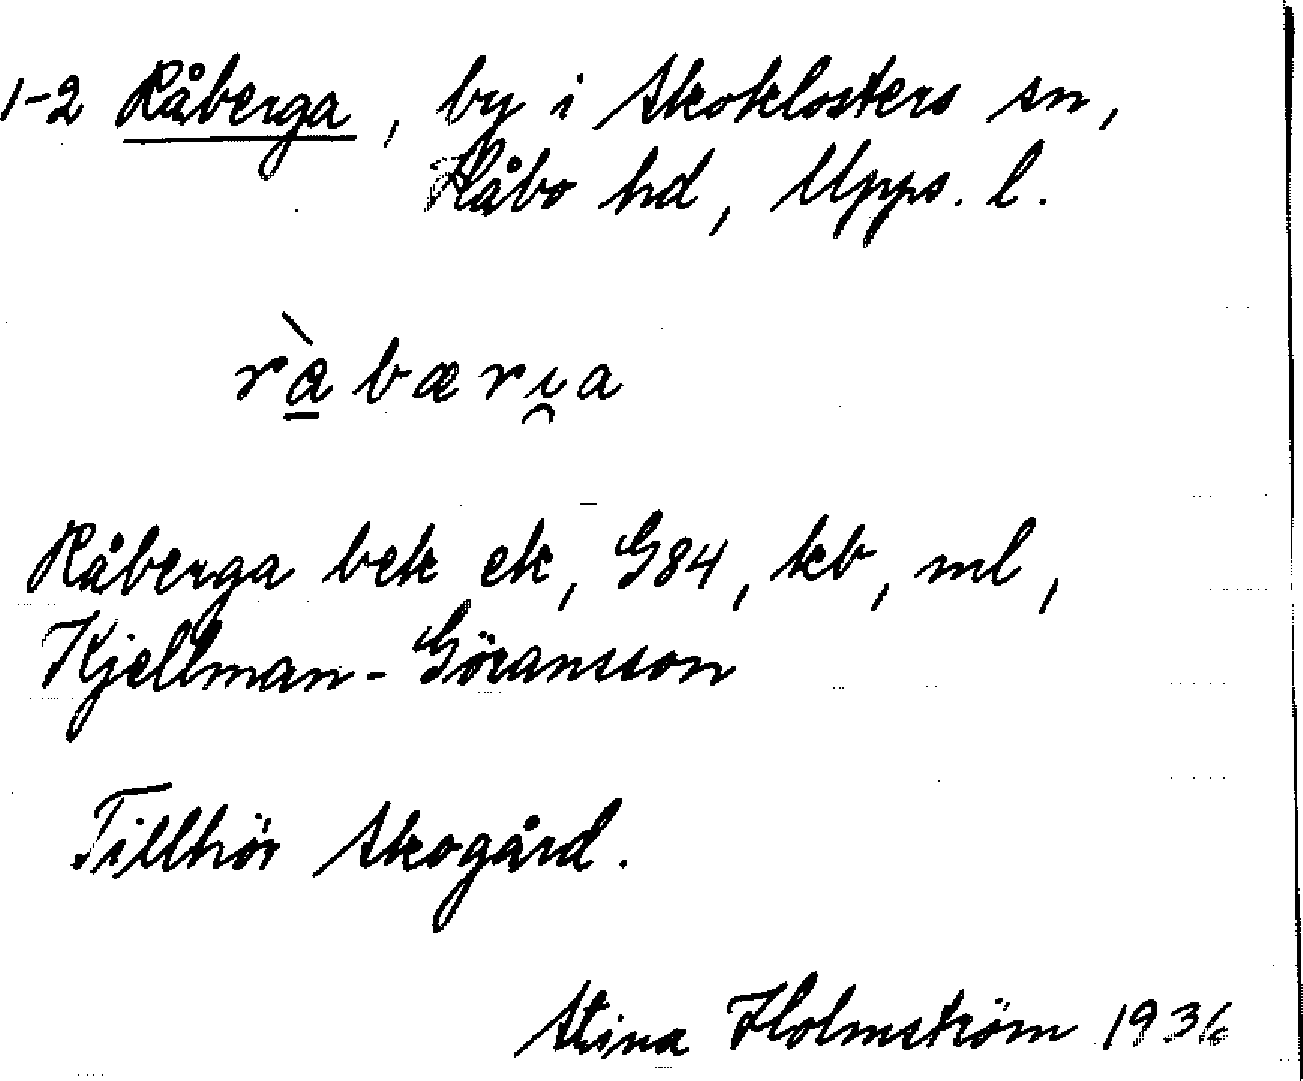 1-2 Råberga, by i Skoklosters sn,
Håbo hd, Upps. l.
ràbærı̯a
Råberga bek ek, G84, kb, ml,
Kjellman-Göransson
Tillhör Skogård.
Stina Holmström 1936